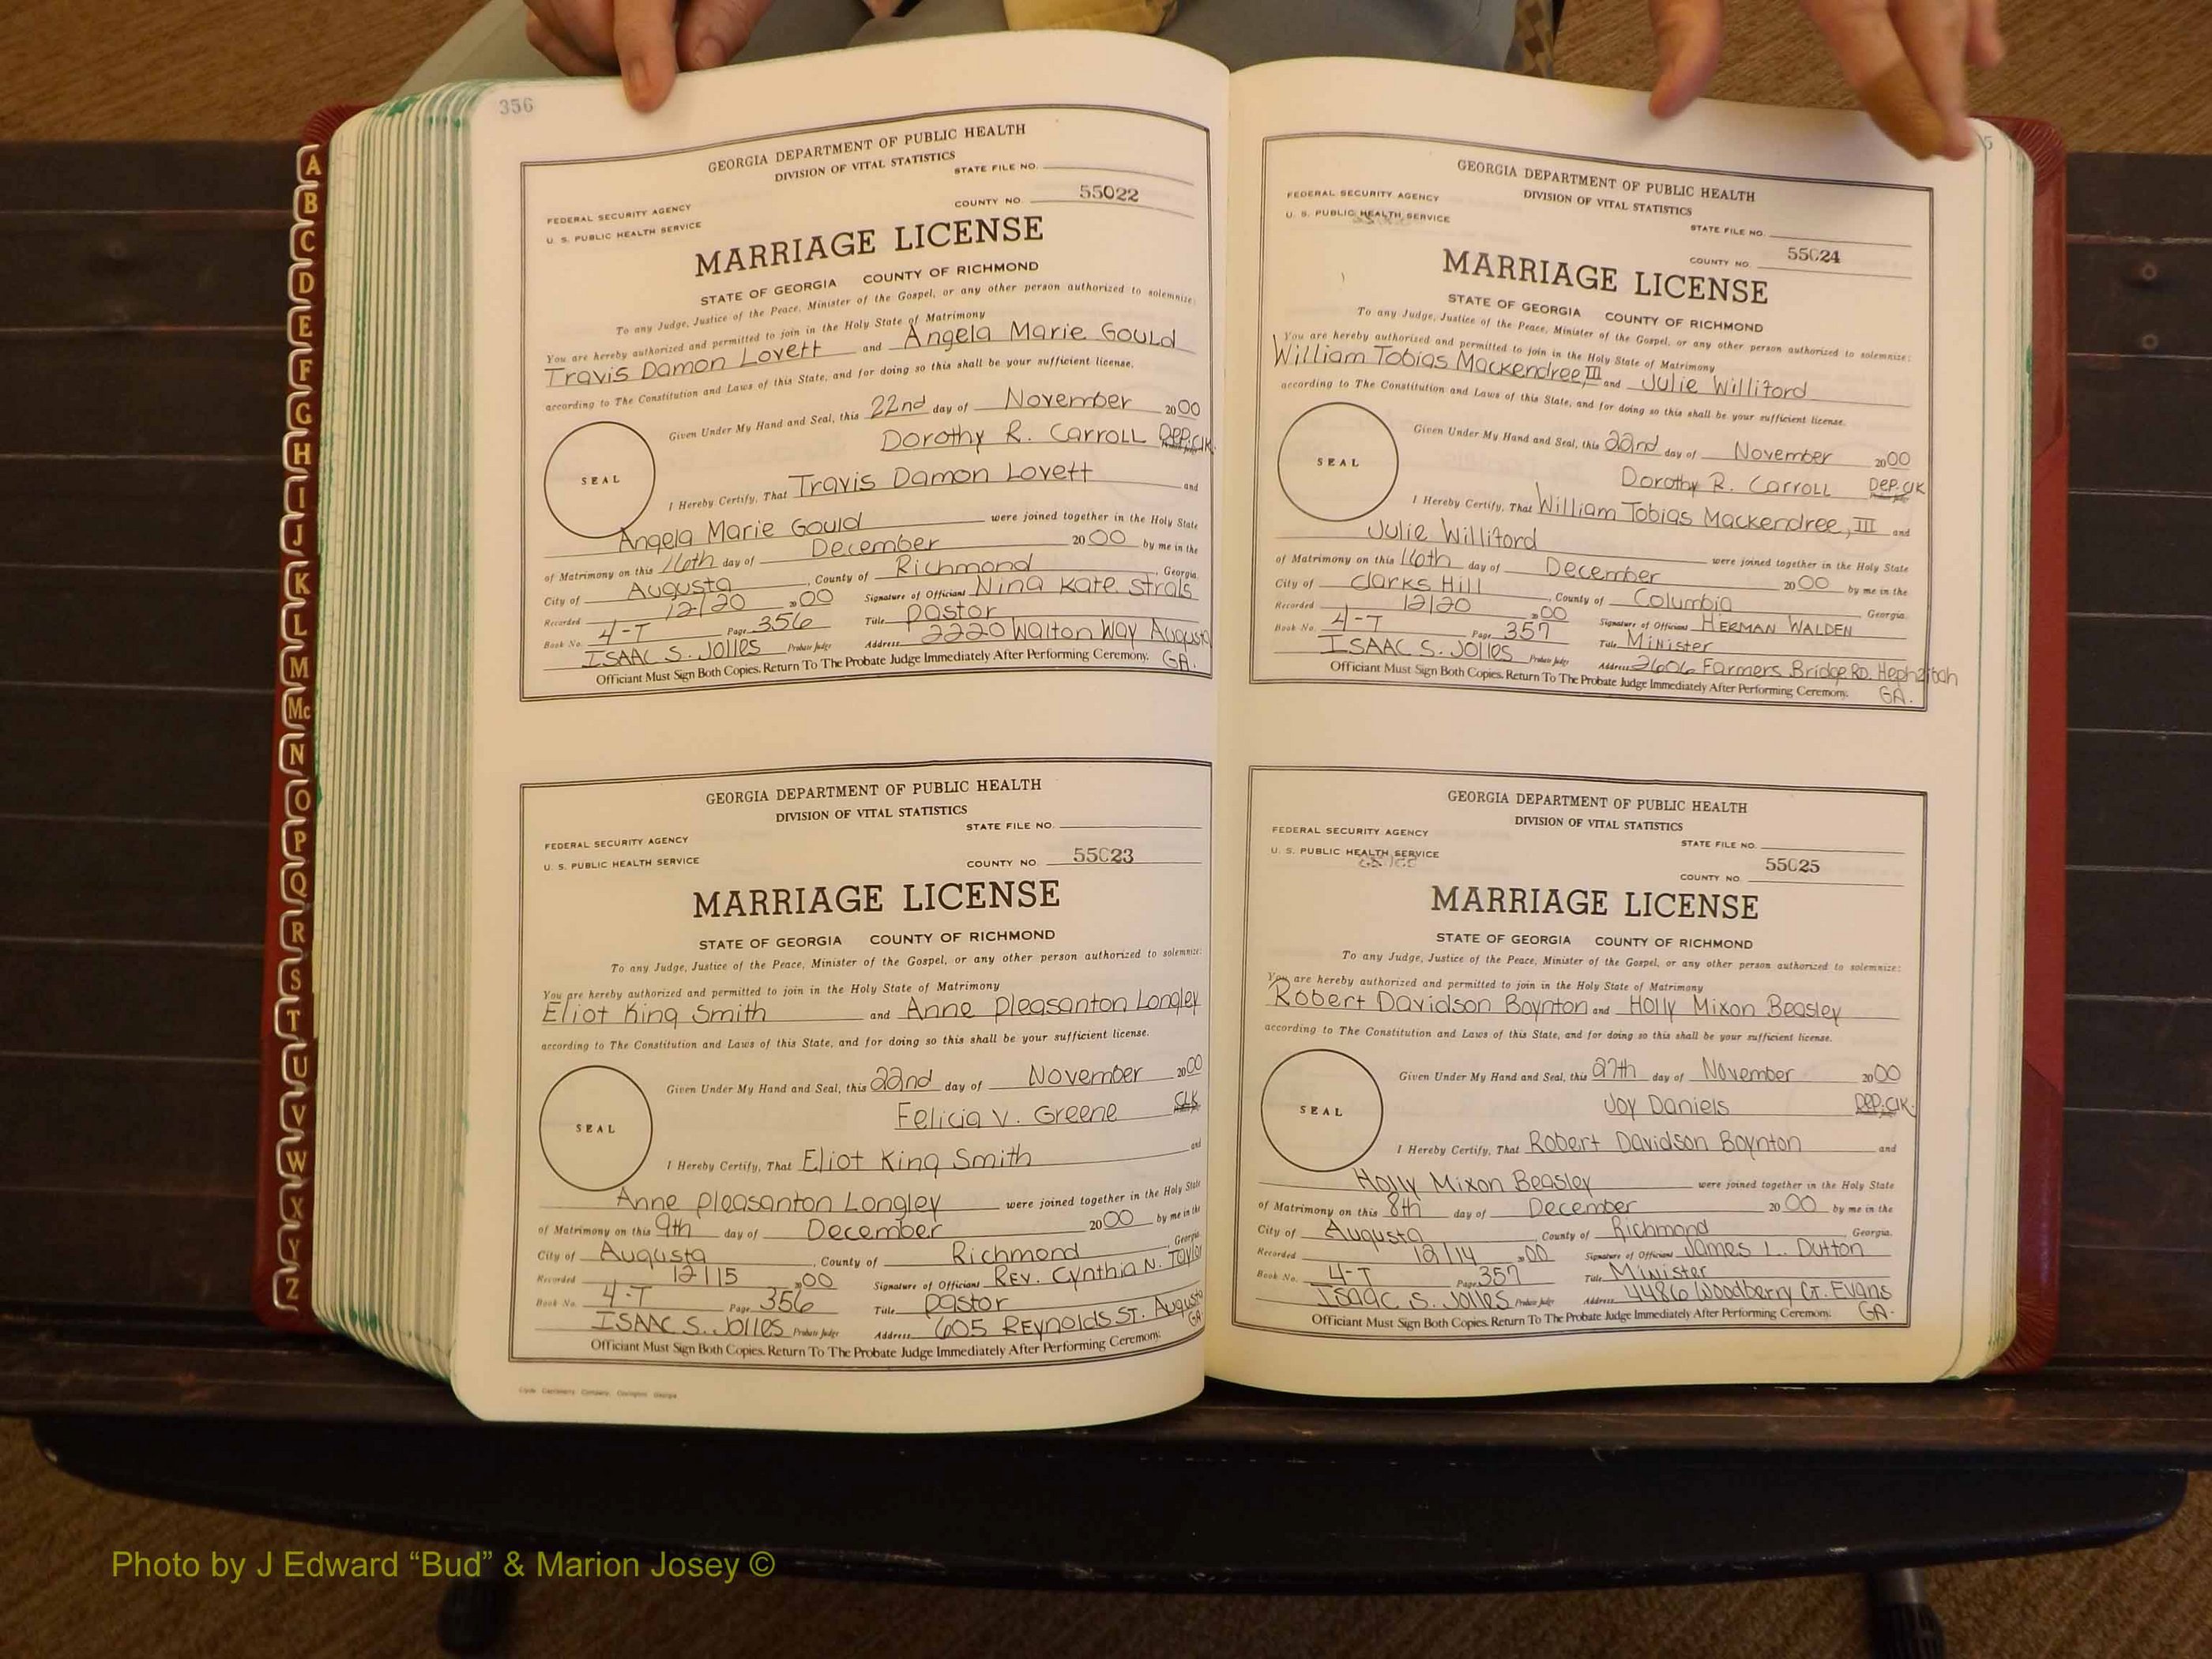 356
GEORGIA DEPARTMENT OF PUBLIC HEALTH
DIVISION OF VITAL STATISTICS
STATE FILE NO.
FEDERAL SECURITY AGENCY
COUNTY NO. 55022
U. S. PUBLIC HEALTH SERVICE
MARRIAGE LICENSE
STATE OF GEORGIA COUNTY OF RICHMOND
To any Judge, Justice of the Peace, Minister of the Gospel, or any other person authorized to solemnize:
You are hereby authorized and permitted to join in the Holy State of Matrimony
Travis Damon Lovett and Angela Marie Gould
according to The Constitution and Laws of this State, and for doing so this shall be your sufficient license.
Given Under My Hand and Seal, this 22nd day of November 2000
Dorothy R. Carroll Dep. Clk.
SEAL
I Hereby Certify, That Travis Damon Lovett and
Angela Marie Gould were joined together in the Holy State
of Matrimony on this 16th day of December 2000 by me in the
City of Augusta, County of Richmond, Georgia.
Recorded 12/20 2000 Signature of Officiant Nina Kate Strals
Book No. 4-T Page 356 Title Pastor
Isaac S. Jolles Probate Judge Address 2220 Walton Way Augusta GA.
Officiant Must Sign Both Copies. Return To The Probate Judge Immediately After Performing Ceremony.
GEORGIA DEPARTMENT OF PUBLIC HEALTH
DIVISION OF VITAL STATISTICS
STATE FILE NO.
FEDERAL SECURITY AGENCY
U. S. PUBLIC HEALTH SERVICE
COUNTY NO. 55023
MARRIAGE LICENSE
STATE OF GEORGIA COUNTY OF RICHMOND
To any Judge, Justice of the Peace, Minister of the Gospel, or any other person authorized to solemnize:
You are hereby authorized and permitted to join in the Holy State of Matrimony
Eliot King Smith and Anne Pleasanton Longley
according to The Constitution and Laws of this State, and for doing so this shall be your sufficient license.
Given Under My Hand and Seal, this 22nd day of November 2000
Felicia V. Greene CLK
SEAL
I Hereby Certify, That Eliot King Smith and
Anne Pleasanton Longley were joined together in the Holy State
of Matrimony on this 9th day of December 2000 by me in the
City of Augusta, County of Richmond, Georgia.
Recorded 12/15 2000 Signature of Officiant Rev. Cynthia N. Taylor
Book No. 4-T Page 356 Title Pastor
Isaac S. Jolles Probate Judge Address 605 Reynolds St. Augusta GA
Officiant Must Sign Both Copies. Return To The Probate Judge Immediately After Performing Ceremony.
GEORGIA DEPARTMENT OF PUBLIC HEALTH
DIVISION OF VITAL STATISTICS
FEDERAL SECURITY AGENCY
U. S. PUBLIC HEALTH SERVICE
STATE FILE NO.
COUNTY NO. 55024
MARRIAGE LICENSE
STATE OF GEORGIA COUNTY OF RICHMOND
To any Judge, Justice of the Peace, Minister of the Gospel, or any other person authorized to solemnize:
You are hereby authorized and permitted to join in the Holy State of Matrimony
William Tobias Mackendree, III and Julie Williford
according to The Constitution and Laws of this State, and for doing so this shall be your sufficient license.
Given Under My Hand and Seal, this 22nd day of November 2000
Dorothy R. Carroll Dep. Clk
SEAL
I Hereby Certify, That William Tobias Mackendree, III and
Julie Williford were joined together in the Holy State
of Matrimony on this 16th day of December 2000 by me in the
City of Clarks Hill, County of Columbia Georgia.
Recorded 12/20 2000 Signature of Officiant HERMAN WALDEN
Book No. 4-T Page 357 Title Minister
Isaac S. Jolles Probate Judge Address 2606 Farmers Bridge RD. Hephzibah GA.
Officiant Must Sign Both Copies. Return To The Probate Judge Immediately After Performing Ceremony.
GEORGIA DEPARTMENT OF PUBLIC HEALTH
DIVISION OF VITAL STATISTICS
FEDERAL SECURITY AGENCY
U. S. PUBLIC HEALTH SERVICE
STATE FILE NO.
COUNTY NO. 55025
MARRIAGE LICENSE
STATE OF GEORGIA COUNTY OF RICHMOND
To any Judge, Justice of the Peace, Minister of the Gospel, or any other person authorized to solemnize:
You are hereby authorized and permitted to join in the Holy State of Matrimony
Robert Davidson Boynton and Holly Mixon Beasley
according to The Constitution and Laws of this State, and for doing so this shall be your sufficient license.
Given Under My Hand and Seal, this 27th day of November 2000
Joy Daniels Dep. Clk.
SEAL
I Hereby Certify, That Robert Davidson Boynton and
Holly Mixon Beasley were joined together in the Holy State
of Matrimony on this 8th day of December 2000 by me in the
City of Augusta, County of Richmond Georgia.
Recorded 12/14 2000 Signature of Officiant James L. Dutton
Book No. 4-T Page 357 Title Minister
Isaac S. Jolles Probate Judge Address 4486 Woodberry Ct. Evans GA.
Officiant Must Sign Both Copies. Return To The Probate Judge Immediately After Performing Ceremony.
A
B
C
D
E
F
G
H
I
J
K
L
M
Mc
N
O
P
Q
R
S
T
U
V
W
X
Y
Z
Photo by J Edward “Bud” & Marion Josey ©